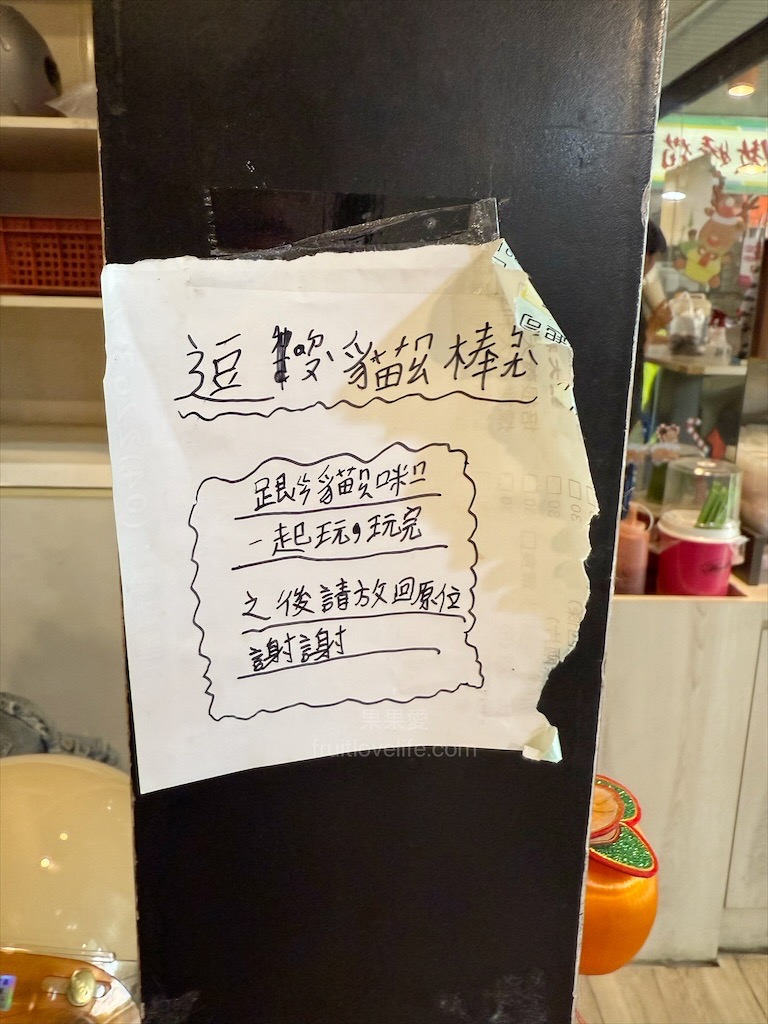 逗貓棒
跟貓咪
一起玩，玩完
之後請放回原位
謝謝
果果愛
fruitlovelife.com